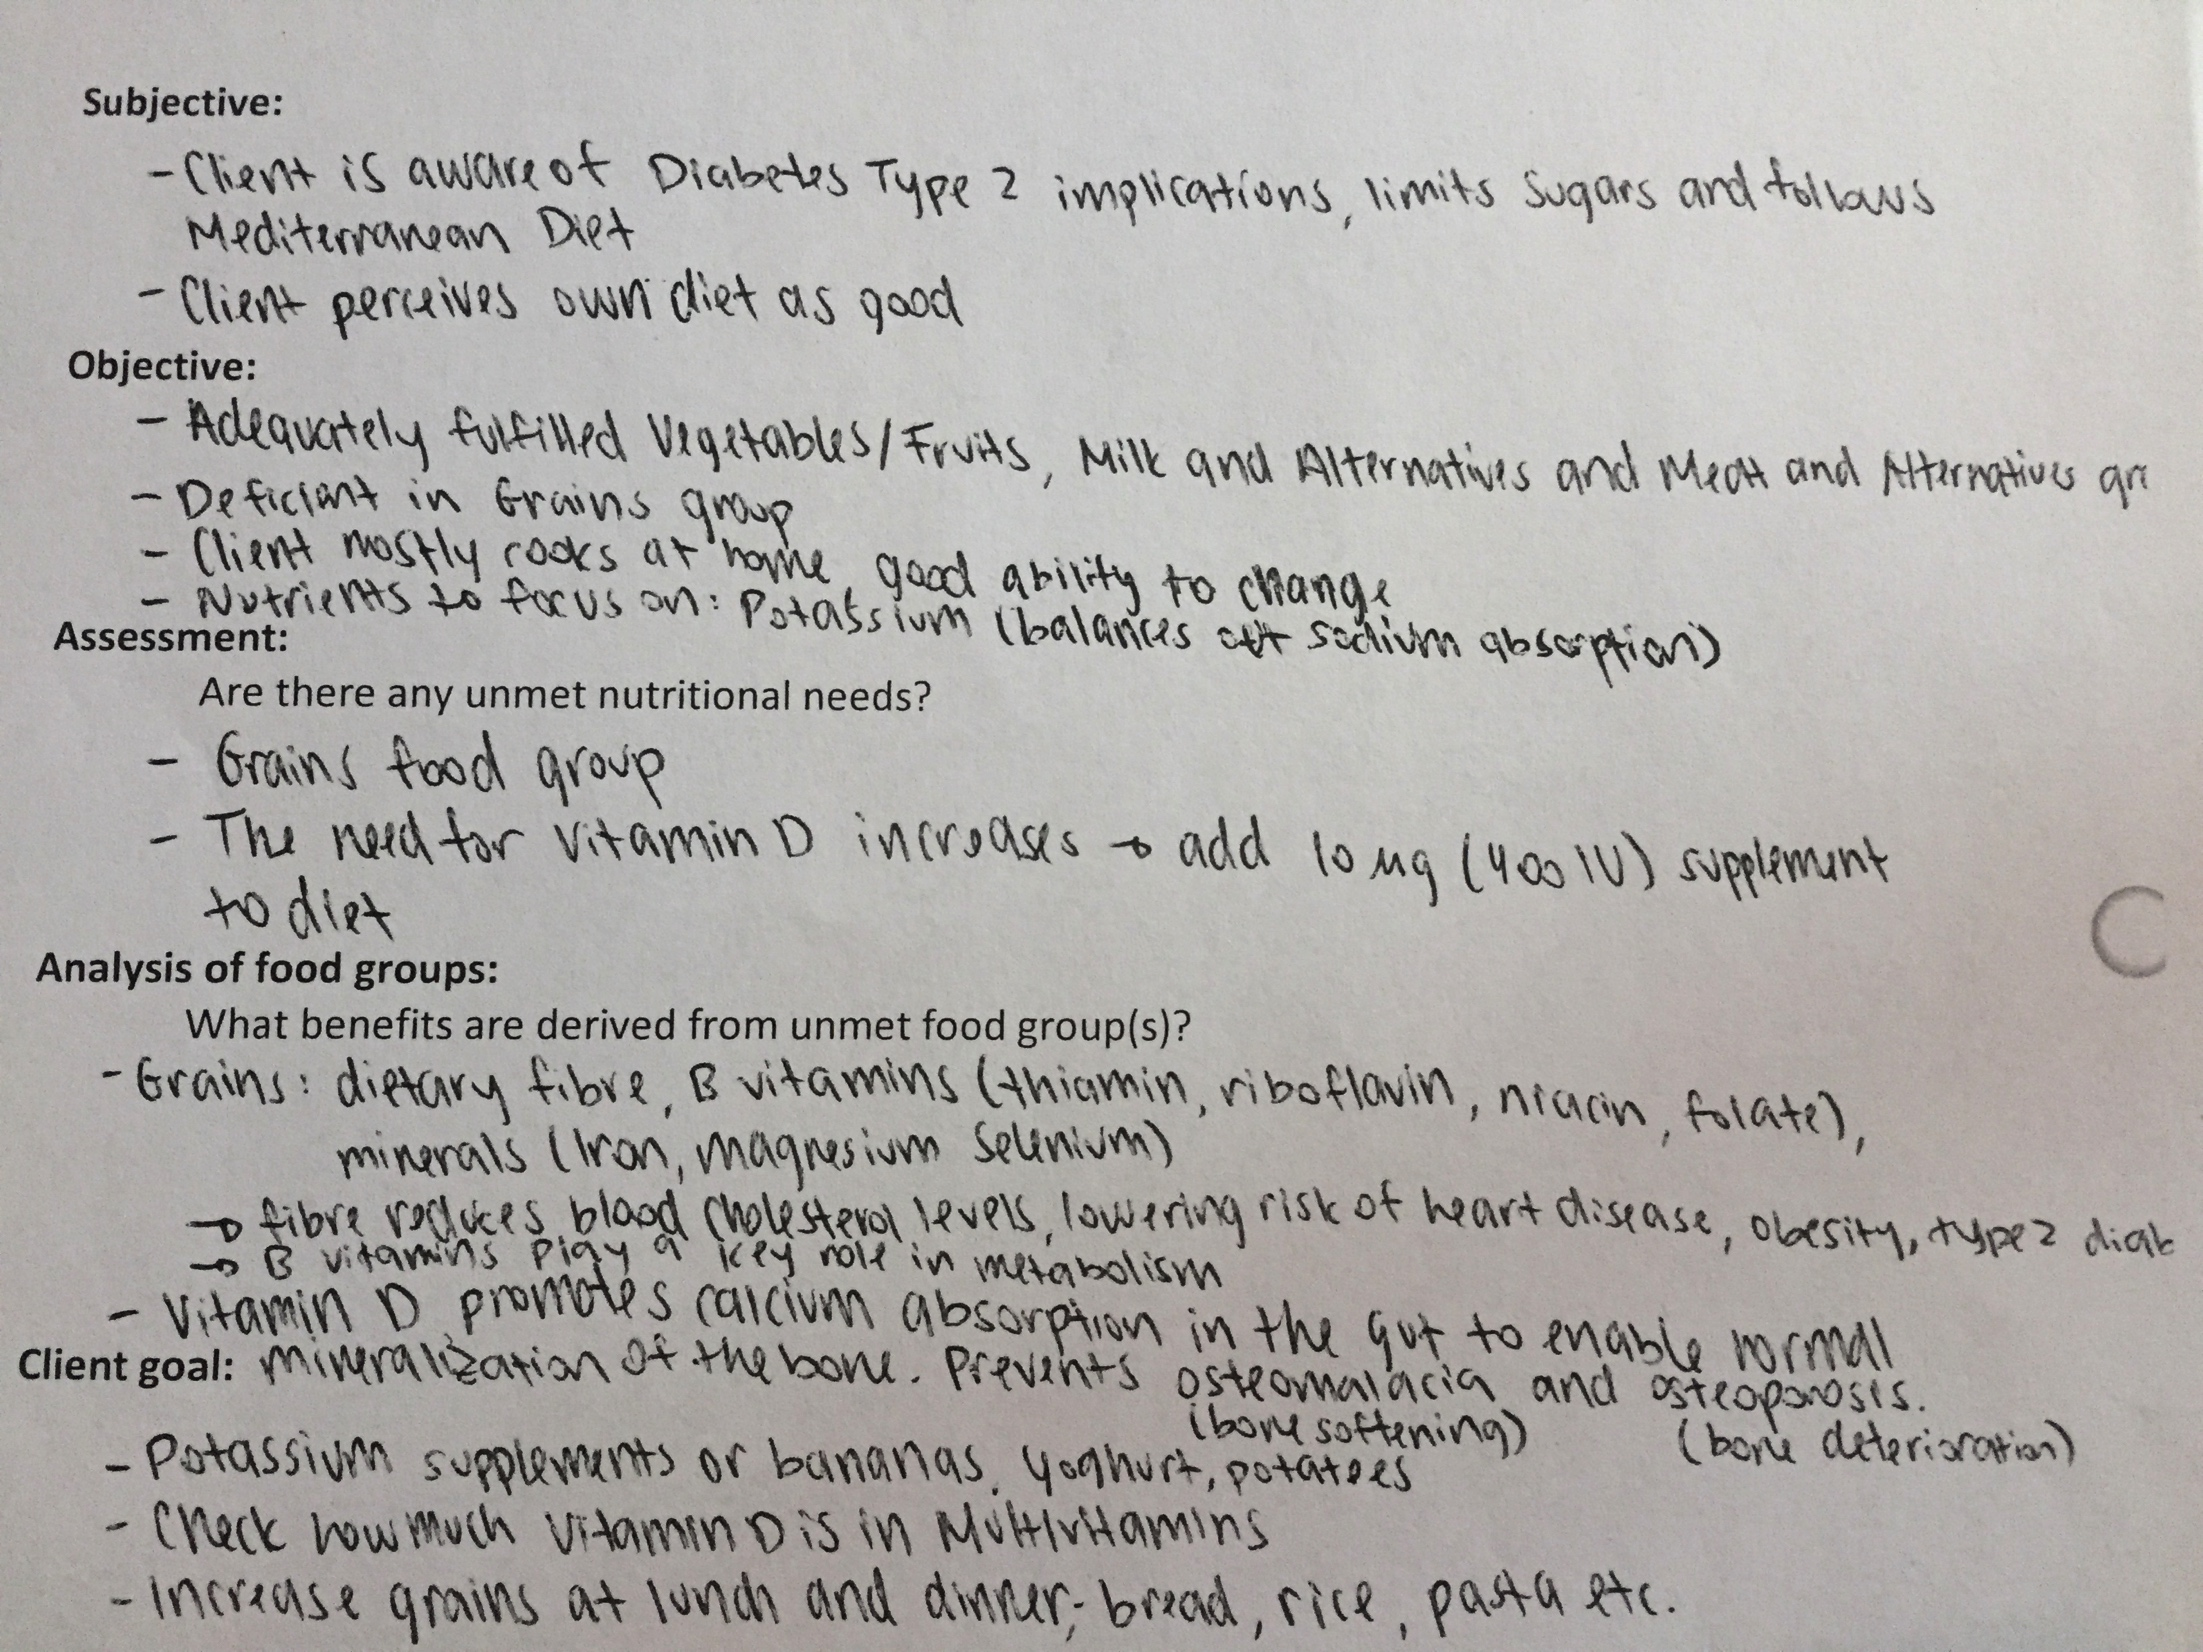 Subjective:
- Client is aware of Diabetes Type 2 implications, limits sugars and follows
Mediterranean Diet
- Client perceives own diet as good
Objective:
- Adequately fulfilled Vegetables/Fruits, Milk and Alternatives and Meat and Alternatives gr
- Deficiant in Grains group
- Client mostly cooks at home, good ability to change
- Nutrients to focus on: Potassium (balances out sodium absorption)
Assessment:
Are there any unmet nutritional needs?
- Grains food group
- The need for vitamin D increases → add 10 µg (400 IU) supplement
to diet
Analysis of food groups:
What benefits are derived from unmet food group(s)?
- Grains: dietary fibre, B vitamins (thiamin, riboflavin, niacin, folate),
minerals (Iron, magnesium selenium)
→ fibre reduces blood cholesterol levels, lowering risk of heart disease, obesity, type 2 diab
→ B vitamins play a key role in metabolism
- Vitamin D promotes calcium absorption in the gut to enable normal
Client goal: mineralization of the bone. Prevents osteomalacia and osteoporosis.
(bone softening) (bone deterioration)
- Potassium supplements or bananas, yoghurt, potatoes
- Check how much vitamin D is in Multivitamins
- Increase grains at lunch and dinner; bread, rice, pasta etc.